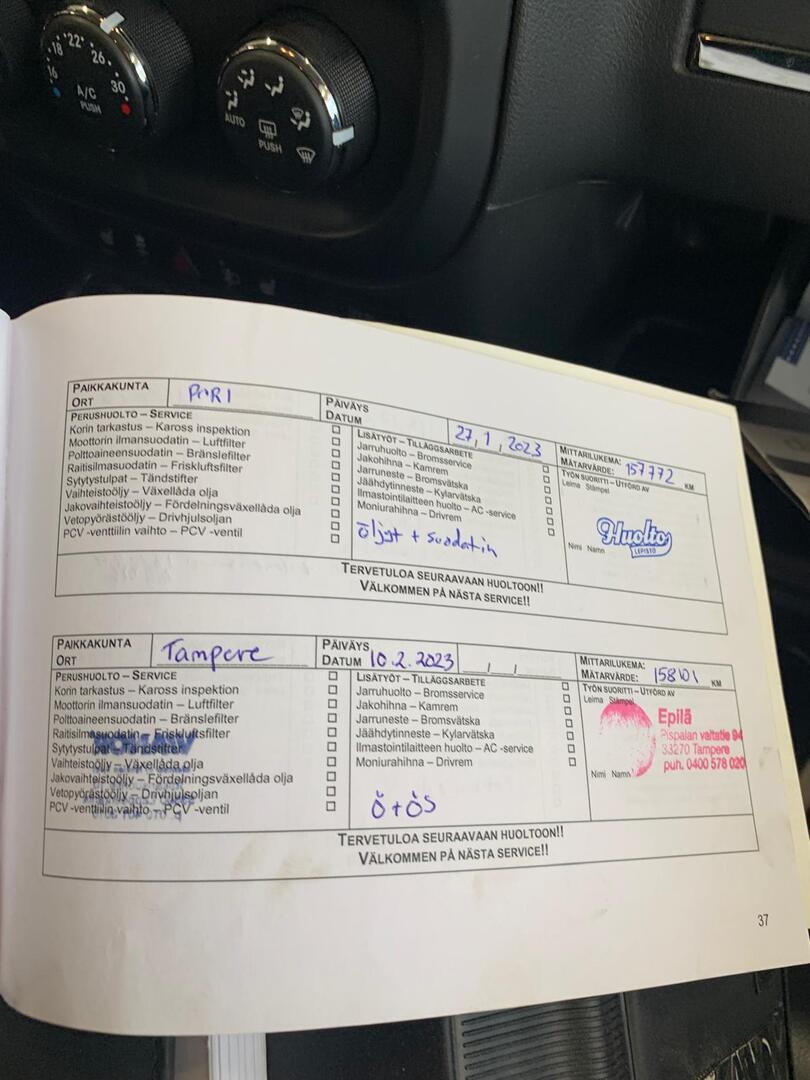 18 22° 26
16 A/C 30
PUSH
AUTO
PUSH
PAIKKAKUNTA
ORT
PORI
PÄIVÄYS
DATUM
27,1,2023
MITTARILUKEMA:
MÄTARVÄRDE: 157772 KM
PERUSHUOLTO – SERVICE
Korin tarkastus – Kaross inspektion
Moottorin ilmansuodatin – Luftfilter
Polttoaineensuodatin – Bränslefilter
Raitisilmasuodatin – Friskluftsfilter
Sytytystulpat – Tändstifter
Vaihteistoöljy – Växellåda olja
Jakovaihteistoöljy – Fördelningsväxellåda olja
Vetopyörästööljy – Drivhjulsoljan
PCV -venttiilin vaihto – PCV -ventil
LISÄTYÖT – TILLÄGGSARBETE
Jarruhuolto – Bromsservice
Jakohihna – Kamrem
Jarruneste – Bromsvätska
Jäähdytinneste – Kylarvätska
Ilmastointilaitteen huolto – AC -service
Moniurahihna – Drivrem
öljyt + suodatin
TYÖN SUORITTI – UTFÖRD AV
Leima Stämpel
Huolto
LEPISTÖ
Nimi Namn
TERVETULOA SEURAAVAAN HUOLTOON!!
VÄLKOMMEN PÅ NÄSTA SERVICE!!
PAIKKAKUNTA
ORT
Tampere
PÄIVÄYS
DATUM 10.2.2023
MITTARILUKEMA:
MÄTARVÄRDE: 158101 KM
PERUSHUOLTO – SERVICE
Korin tarkastus – Kaross inspektion
Moottorin ilmansuodatin – Luftfilter
Polttoaineensuodatin – Bränslefilter
Raitisilmasuodatin – Friskluftsfilter
Sytytystulpat – Tändstifter
Vaihteistoöljy – Växellåda olja
Jakovaihteistoöljy – Fördelningsväxellåda olja
Vetopyörästööljy – Drivhjulsoljan
PCV -venttiilin vaihto – PCV -ventil
LISÄTYÖT – TILLÄGGSARBETE
Jarruhuolto – Bromsservice
Jakohihna – Kamrem
Jarruneste – Bromsvätska
Jäähdytinneste – Kylarvätska
Ilmastointilaitteen huolto – AC -service
Moniurahihna – Drivrem
Ö+ÖS
TYÖN SUORITTI – UTFÖRD AV
Leima Stämpel
Epilä
Pispalan valtatie 94
33270 Tampere
puh. 0400 578 020
Nimi Namn
TERVETULOA SEURAAVAAN HUOLTOON!!
VÄLKOMMEN PÅ NÄSTA SERVICE!!
37